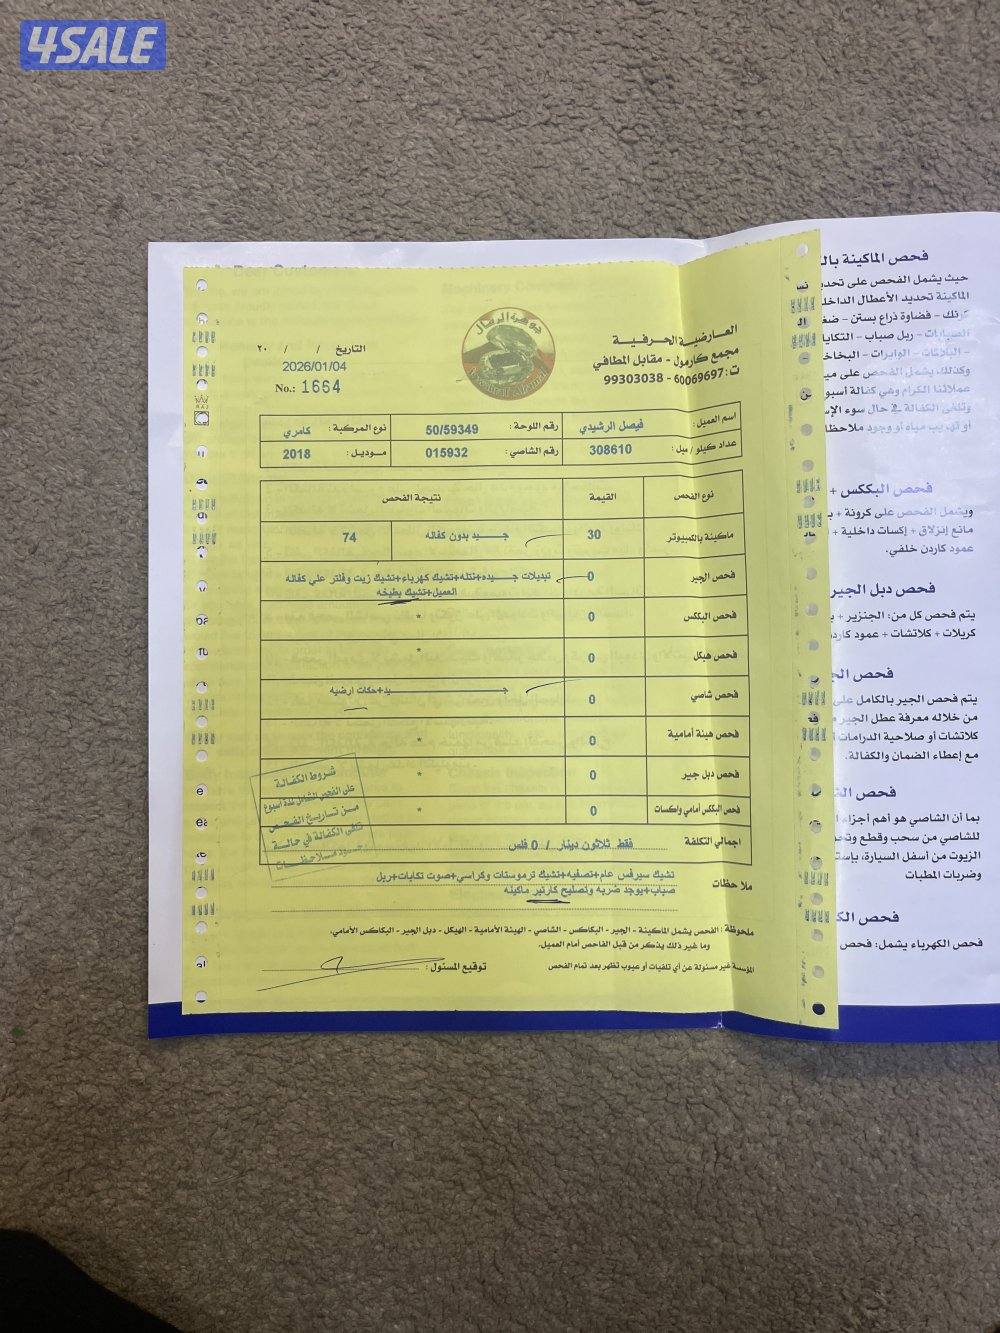 4SALE
جوهرة الرمال
العارضية الحرفية
مجمع كارمول - مقابل المطافي
ت: 60069697 - 99303038
التاريخ / / ٢٠
2026/01/04
No.: 1664
اسم العميل: فيصل الرشيدي رقم اللوحة: 50/59349 نوع المركبة: كامري
عداد كيلو / ميل: 308610 رقم الشاصي: 015932 موديل: 2018
نوع الفحص القيمة نتيجة الفحص
ماكينة بالكمبيوتر 30 جيد بدون كفاله 74
فحص الجير 0 تبديلات جيده+نتله+تشيك كهرباء+تشيك زيت وفلتر علي كفاله
العميل+تشيك بطيخه
فحص البككس 0 *
فحص هيكل 0 *
فحص شاصي 0 جيد+حكات ارضيه
فحص هيئة أمامية 0 *
فحص دبل جير 0 *
فحص البككس أمامي واكسات 0 *
إجمالي التكلفة فقط ثلاثون دينار / 0 فلس
شروط الكفالة
على الفحص الشامل لمدة اسبوع
من تاريخ الفحص
تلغى الكفالة في حالة
وجود ملاحظات
ملاحظات تشيك سيرفس عام+تصفيه+تشيك ترموستات وكراسي+صوت تكايات+ربل
صباب+يوجد ضربه وتصليح كارتير ماكينه
ملحوظة: الفحص يشمل الماكينة - الجير - البكاكس - الشاصي - الهيئة الأمامية - الهيكل - دبل الجير - البكاكس الأمامي.
وما غير ذلك يذكر من قبل الفاحص أمام العميل.
المؤسسة غير مسئولة عن أي تلفيات أو عيوب تظهر بعد تمام الفحص توقيع المسئول:
فحص الماكينة
حيث يشمل الفحص على
الماكينة تحديد الأعطال
كرنك - فضاوة ذراع بستن -
الصبابات - ربل صباب -
- البلاكات - الوايرات -
وكذلك يشمل الفحص على
عملائنا الكرام وهي كفالة
وتلغى الكفالة في حال سوء
أو تهريب مياه أو وجود
فحص البككس +
ويشمل الفحص على كرونة +
مانع إنزلاق + إكسات داخلية +
عمود كاردن خلفي.
فحص دبل الجير
يتم فحص كل من: الجنزير +
كريلات + كلاتشات + عمود
فحص
يتم فحص الجير بالكامل
من خلاله معرفة عطل الجير
كلاتشات أو صلاحية الدرامات
مع إعطاء الضمان والكفالة.
فحص
بما أن الشاصي هو أهم أجزاء
للشاصي من سحب وقطع
الزيوت من أسفل السيارة،
وضربات المطبات
فحص
فحص الكهرباء يشمل: فحص